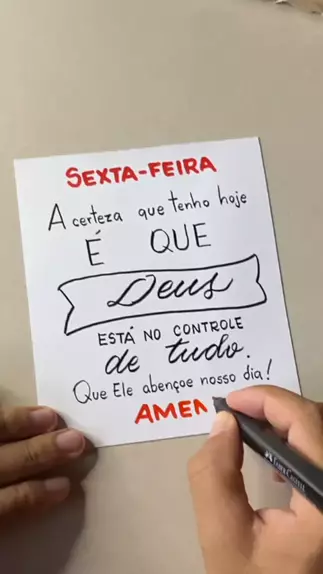 SEXTA-FEIRA
A certeza que tenho hoje
É QUE
Deus
ESTÁ NO CONTROLE
de tudo.
Que Ele abençoe nosso dia!
AMEN